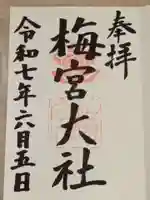 奉拝
梅宮大社
令和七年六月五日